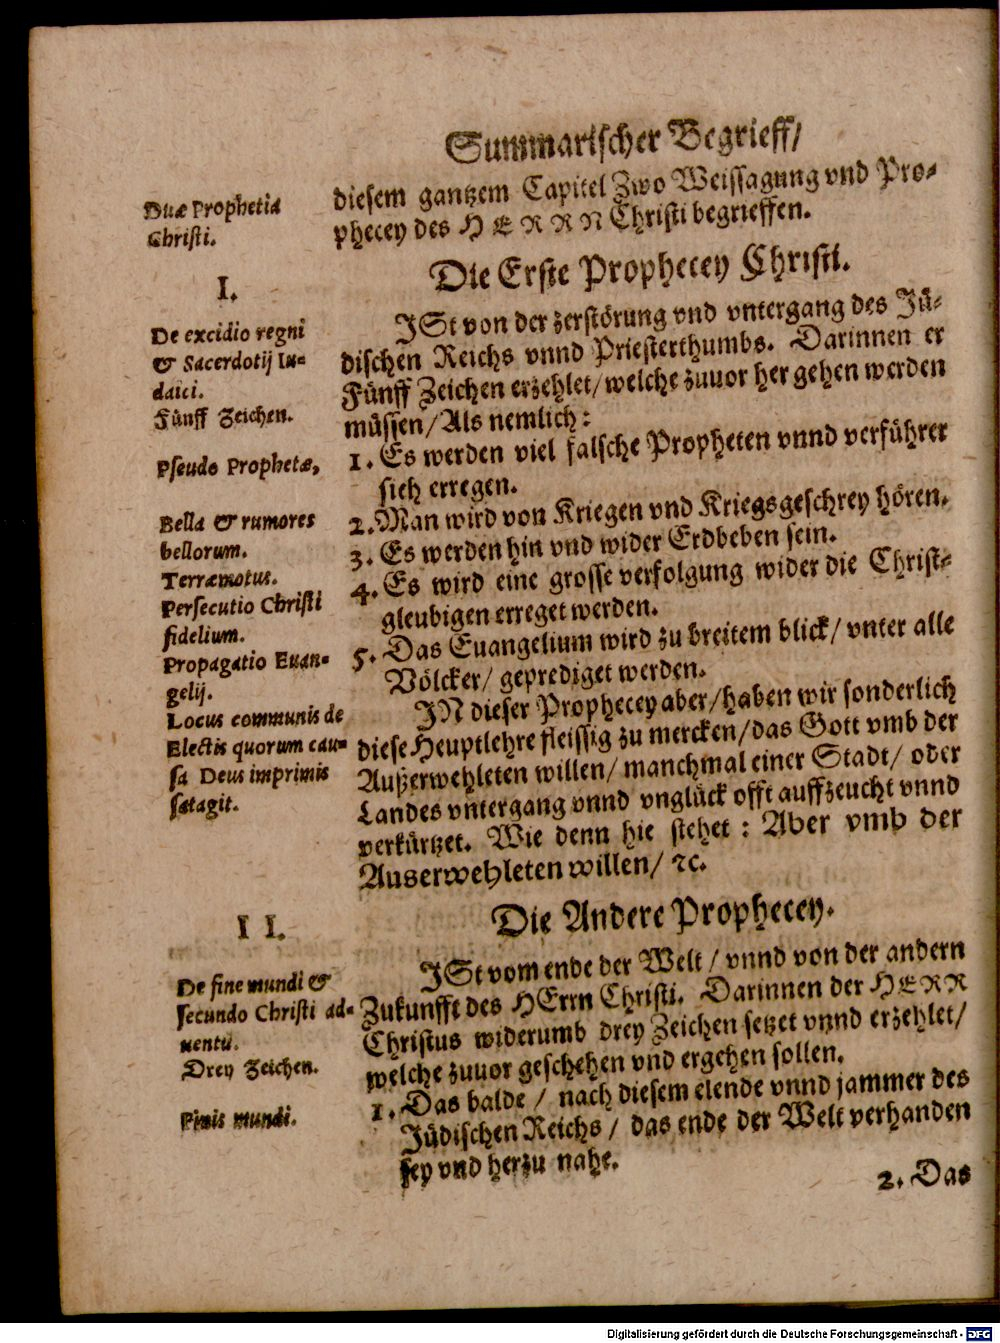 Summarischer Begrieff/
Duæ Prophetiæ
Christi.
diesem gantzem Capitel Zwo Weissagung vnd Pro-
phecey des HERRN Christi begrieffen.
I.
Die Erste Prophecey Christi.
De excidio regni
& Sacerdotij Iu-
daici.
Fünff Zeichen.
JSt von der zerstörung vnd vntergang des Jü-
dischen Reichs vnnd Priesterthumbs. Darinnen er
Fünff Zeichen erzehlet/welche zuuor her gehen werden
müssen/Als nemlich:
Pseudo Prophetæ,
1. Es werden viel falsche Propheten vnnd verführer
sich erregen.
Bella & rumores
bellorum.
2. Man wird von Kriegen vnd Kriegsgeschrey hören.
Terræmotus.
3. Es werden hin vnd wider Erdbeben sein.
Persecutio Christi
fidelium.
4. Es wird eine grosse verfolgung wider die Christ-
gleubigen erreget werden.
Propagatio Euan-
gelij.
5. Das Euangelium wird zu breitem blick/vnter alle
Völcker/ geprediget werden.
Locus communis de
Electis quorum cau-
sa Deus imprimis
satagit.
JN dieser Prophecey aber/haben wir sonderlich
diese Heuptlehre fleissig zu mercken/das Gott vmb der
Außerwehleten willen/ manchmal einer Stadt/ oder
Landes vntergang vnnd vnglück offt auffzeucht vnnd
verkürtzet. Wie denn hie stehet : Aber vmb der
Auserwehleten willen/ ꝛc.
II.
Die Andere Prophecey.
De fine mundi &
secundo Christi ad-
uentu.
Drey Zeichen.
JSt vom ende der Welt / vnnd von der andern
Zukunfft des HErrn Christi. Darinnen der HERR
Christus widerumb drey Zeichen setzet vnnd erzehlet/
welche zuuor geschehen vnd ergehen sollen.
Finis mundi.
1. Das balde / nach diesem elende vnnd jammer des
Jüdischen Reichs / das ende der Welt verhanden
sey vnd herzu nahe.
2. Das
Digitalisierung gefördert durch die Deutsche Forschungsgemeinschaft - DFG